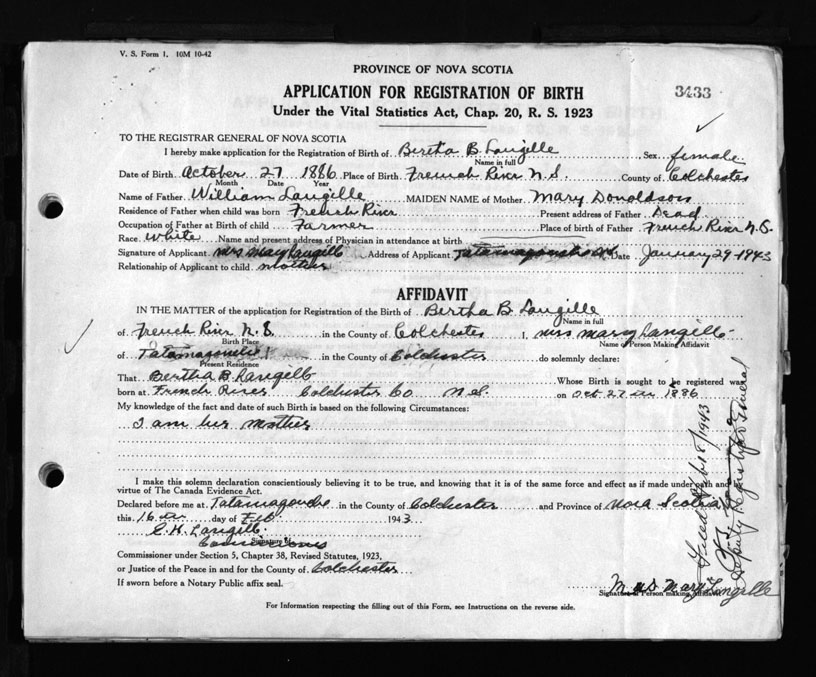 V. S. Form 1. 10M 10-42
PROVINCE OF NOVA SCOTIA
APPLICATION FOR REGISTRATION OF BIRTH
3433
Under the Vital Statistics Act, Chap. 20, R. S. 1923
TO THE REGISTRAR GENERAL OF NOVA SCOTIA
I hereby make application for the Registration of Birth of Bertha B. Langille Sex female
Name in full
Date of Birth October 27 1886 Place of Birth French River N.S. County of Colchester
Month Date Year
Name of Father William Langille MAIDEN NAME of Mother Mary Donaldson
Residence of Father when child was born French River Present address of Father Dead
Occupation of Father at Birth of child Farmer Place of birth of Father French River N.S.
Race white Name and present address of Physician in attendance at birth
Signature of Applicant Mrs Mary Langille Address of Applicant Tatamagouche Date January 29-1943
Relationship of Applicant to child mother
AFFIDAVIT
IN THE MATTER of the application for Registration of the Birth of Bertha B. Langille
Name in full
of French River N.S. in the County of Colchester I, Mrs Mary Langille
Birth Place Name of Person Making Affidavit
of Tatamagouche in the County of Colchester do solemnly declare:
Present Residence
That Bertha B. Langille Whose Birth is sought to be registered was
born at French River Colchester Co N.S. on Oct 27 1886
My knowledge of the fact and date of such Birth is based on the following Circumstances:
I am her Mother
I make this solemn declaration conscientiously believing it to be true, and knowing that it is of the same force and effect as if made under oath and
virtue of The Canada Evidence Act.
Declared before me at Tatamagouche in the County of Colchester and Province of Nova Scotia
this 16 day of Feb 1943
Langille
Signature of
Commissioner under Section 5, Chapter 38, Revised Statutes, 1923,
or Justice of the Peace in and for the County of Colchester
If sworn before a Notary Public affix seal.
Mrs Mary Langille
Signature of Person making Affidavit
For Information respecting the filling out of this Form, see Instructions on the reverse side.
Filed Feb 18/1943
Deputy Registrar General